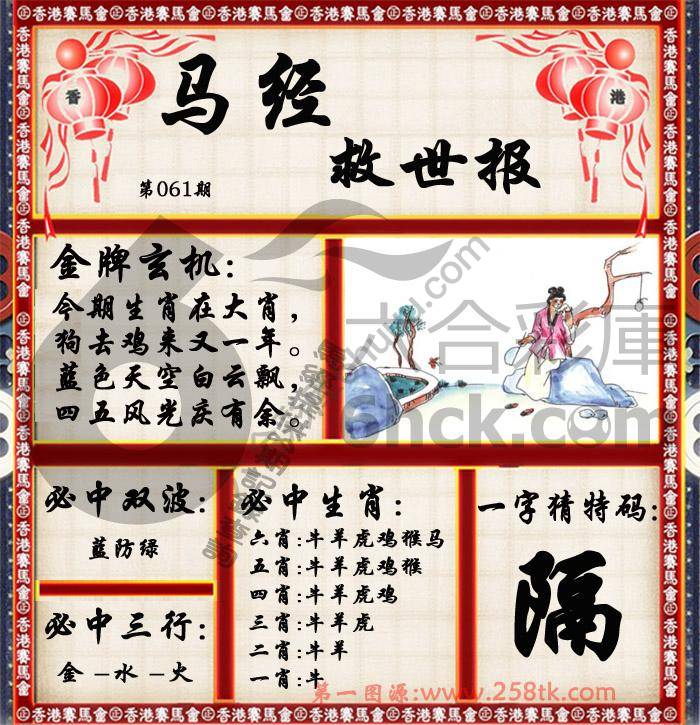 香港賽馬會
香
港
马经
救世报
第061期
金牌玄机:
今期生肖在大肖,
狗去鸡来又一年。
蓝色天空白云飘,
四五风光庆有余。
六合彩庫
6hck.com
必中双波:
蓝防绿
必中三行:
金-水-火
必中生肖:
六肖:牛羊虎鸡猴马
五肖:牛羊虎鸡猴
四肖:牛羊虎鸡
三肖:牛羊虎
二肖:牛羊
一肖:牛
一字猜特码:
隔
第一图源:www.258tk.com